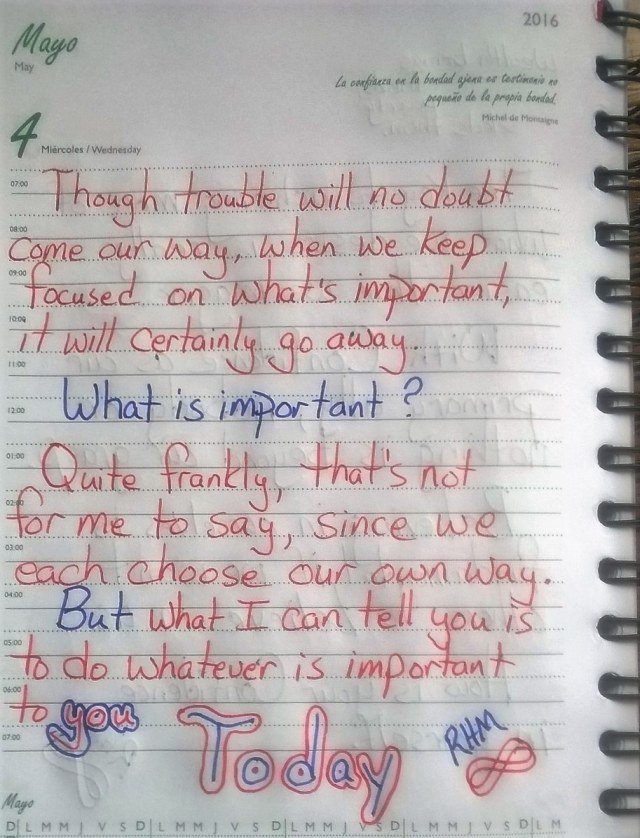 2016
Mayo
May
La confianza en la bondad ajena es testimonio no
pequeño de la propia bondad.
Michel de Montaigne
4 Miércoles / Wednesday
07:00 Though trouble will no doubt
08:00 come our way, when we keep
09:00 focused on what's important,
10:00 it will certainly go away.
11:00
12:00 What is important?
01:00 Quite frankly, that's not
02:00 for me to say, since we
03:00 each choose our own way.
04:00 But what I can tell you is
05:00 to do whatever is important
06:00 to you Today RHM
07:00
Mayo
D L M M J V S D L M M J V S D L M M J V S D L M M J V S D L M